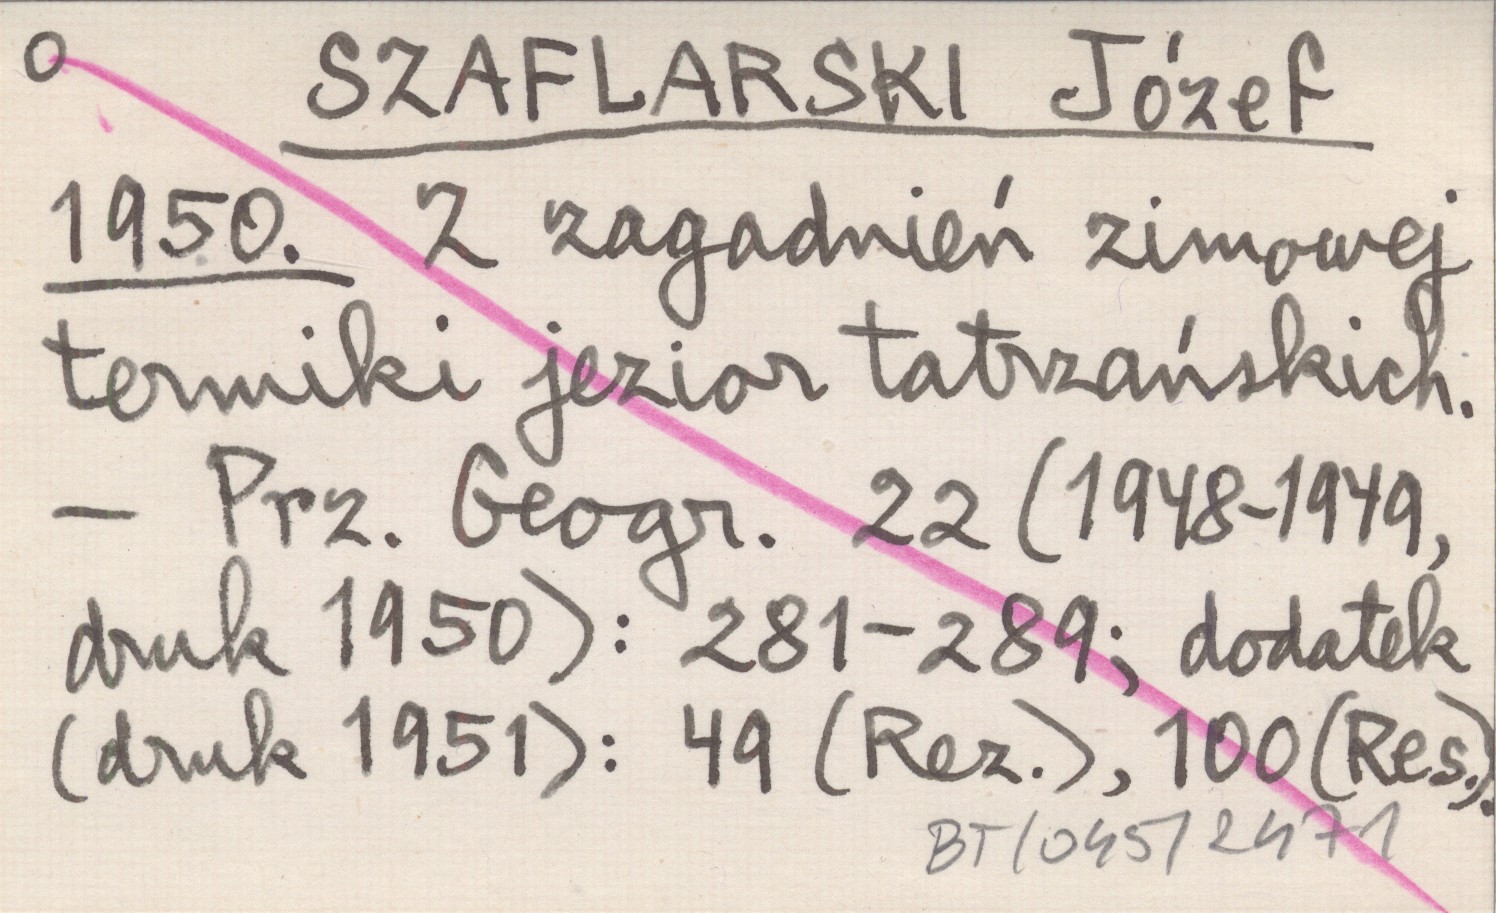 o SZAFLARSKI Józef
1950. Z zagadnień zimowej
termiki jezior tatrzańskich.
— Prz. Geogr. 22 (1948-1949,
druk 1950): 281-289; dodatek
(druk 1951): 49 (Rez.), 100 (Res.).
BT/045/2471